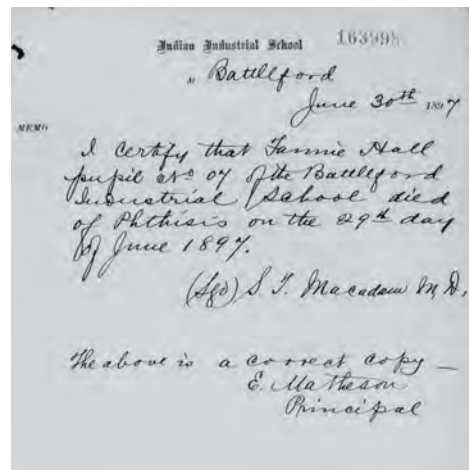 Indian Industrial School 163998
at Battleford
June 30th 1897
MEMO
I certify that Fannie Hall
pupil No 07 of the Battleford
Industrial School died
of Phthisis on the 29th day
of June 1897.
(Sgd) S. T. Macadam M.D.
The above is a correct copy —
E. Matheson
Principal